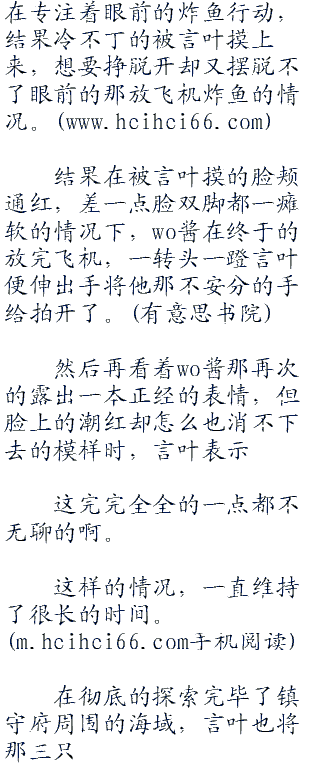 在专注着眼前的炸鱼行动，
结果冷不丁的被言叶摸上
来，想要挣脱开却又摆脱不
了眼前的那放飞机炸鱼的情
况。(www.hcihci66.com)
结果在被言叶摸的脸颊
通红，差一点脸双脚都一瘫
软的情况下，wo酱在终于的
放完飞机，一转头一蹬言叶
便伸出手将他那不安分的手
给拍开了。(有意思书院)
然后再看着wo酱那再次
的露出一本正经的表情，但
脸上的潮红却怎么也消不下
去的模样时，言叶表示
这完完全全的一点都不
无聊的啊。
这样的情况，一直维持
了很长的时间。
(m.hcihci66.com手机阅读)
在彻底的探索完毕了镇
守府周围的海域，言叶也将
那三只